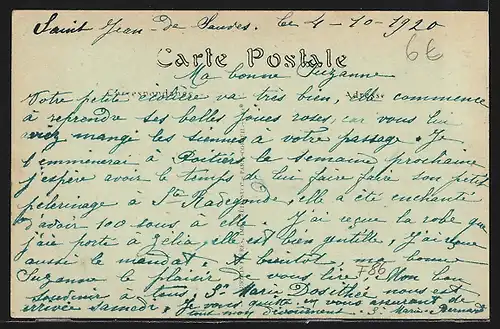 Saint Jean-de Sauves. le 4-10-1920
6€
Carte Postale
Ma bonne Suzanne
Correspondance Adresse
Votre petite écolière va très bien, elle commence
à reprendre ses belles joues roses, car vous lui
avez mangé les siennes à votre passage. Je
l'emmènerai à Poitiers la semaine prochaine
j'espère avoir le temps de lui faire faire son petit
pèlerinage à Ste Radegonde, elle a été enchanté
d'avoir 100 sous à elle. J'ai reçue la robe que
j'aie porté à Zélia, elle est bien gentille, j'ai reçue
aussi le mandat. A bientôt, ma bonne
Suzanne le plaisir de vous lire. Mon bon
F86
souvenir à tous, Sr Marie Dosithée nous est
arrivée samedi, Je vous quitte en vous assurant de
tout mon dévouement. Sr Marie-Bernard